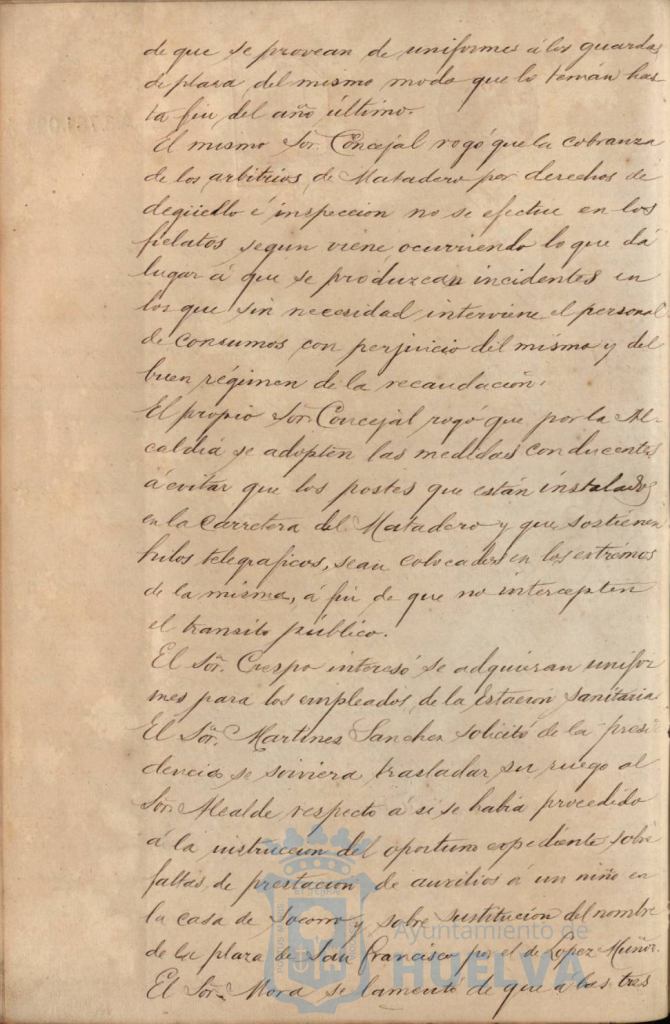 de que se provean de uniformes á los guardas
de plaza, del mismo modo que lo tenián has-
ta fin del año último.
El mismo Sor. Concejal rogó que la cobranza
de los arbitrios, de Matadero por derechos de
degüello é inspeccion no se efectue en los
fielatos, segun viene ocurriendo lo que dá
lugar á que se produzcan incidentes en
los que sin necesidad interviene el personal
de consumos con perjuicio del mismo y del
buen régimen de la recaudación.
El propio Sor. Concejal rogó que por la Al-
caldia se adopten las medidas conducentes
á evitar que los postes que están instalados
en la Carretera del Matadero y que sostienen
hilos telegraficos, sean colocados en los extremos
de la misma, á fin de que no intercepten
el transito público.
El Sor. Crespo interesó se adquieran unifor
mes para los empleados, de la Estacion sanitaria
El Sor. Martinez Sanchez solicitó de la presi
dencia se sirviera trasladar su ruego al
Sor. Alcalde respecto á si se habia procedido
á la instruccion del oportuno expediente sobre
faltas, de prestacion de auxilios á un niño en
la casa de Socorro y sobre sustitución del nombre
de la plaza de San Francisco por el de Lopez Muñoz.
El Sor. Mora se lamentó de que á las tres
Ayuntamiento de
HUELVA